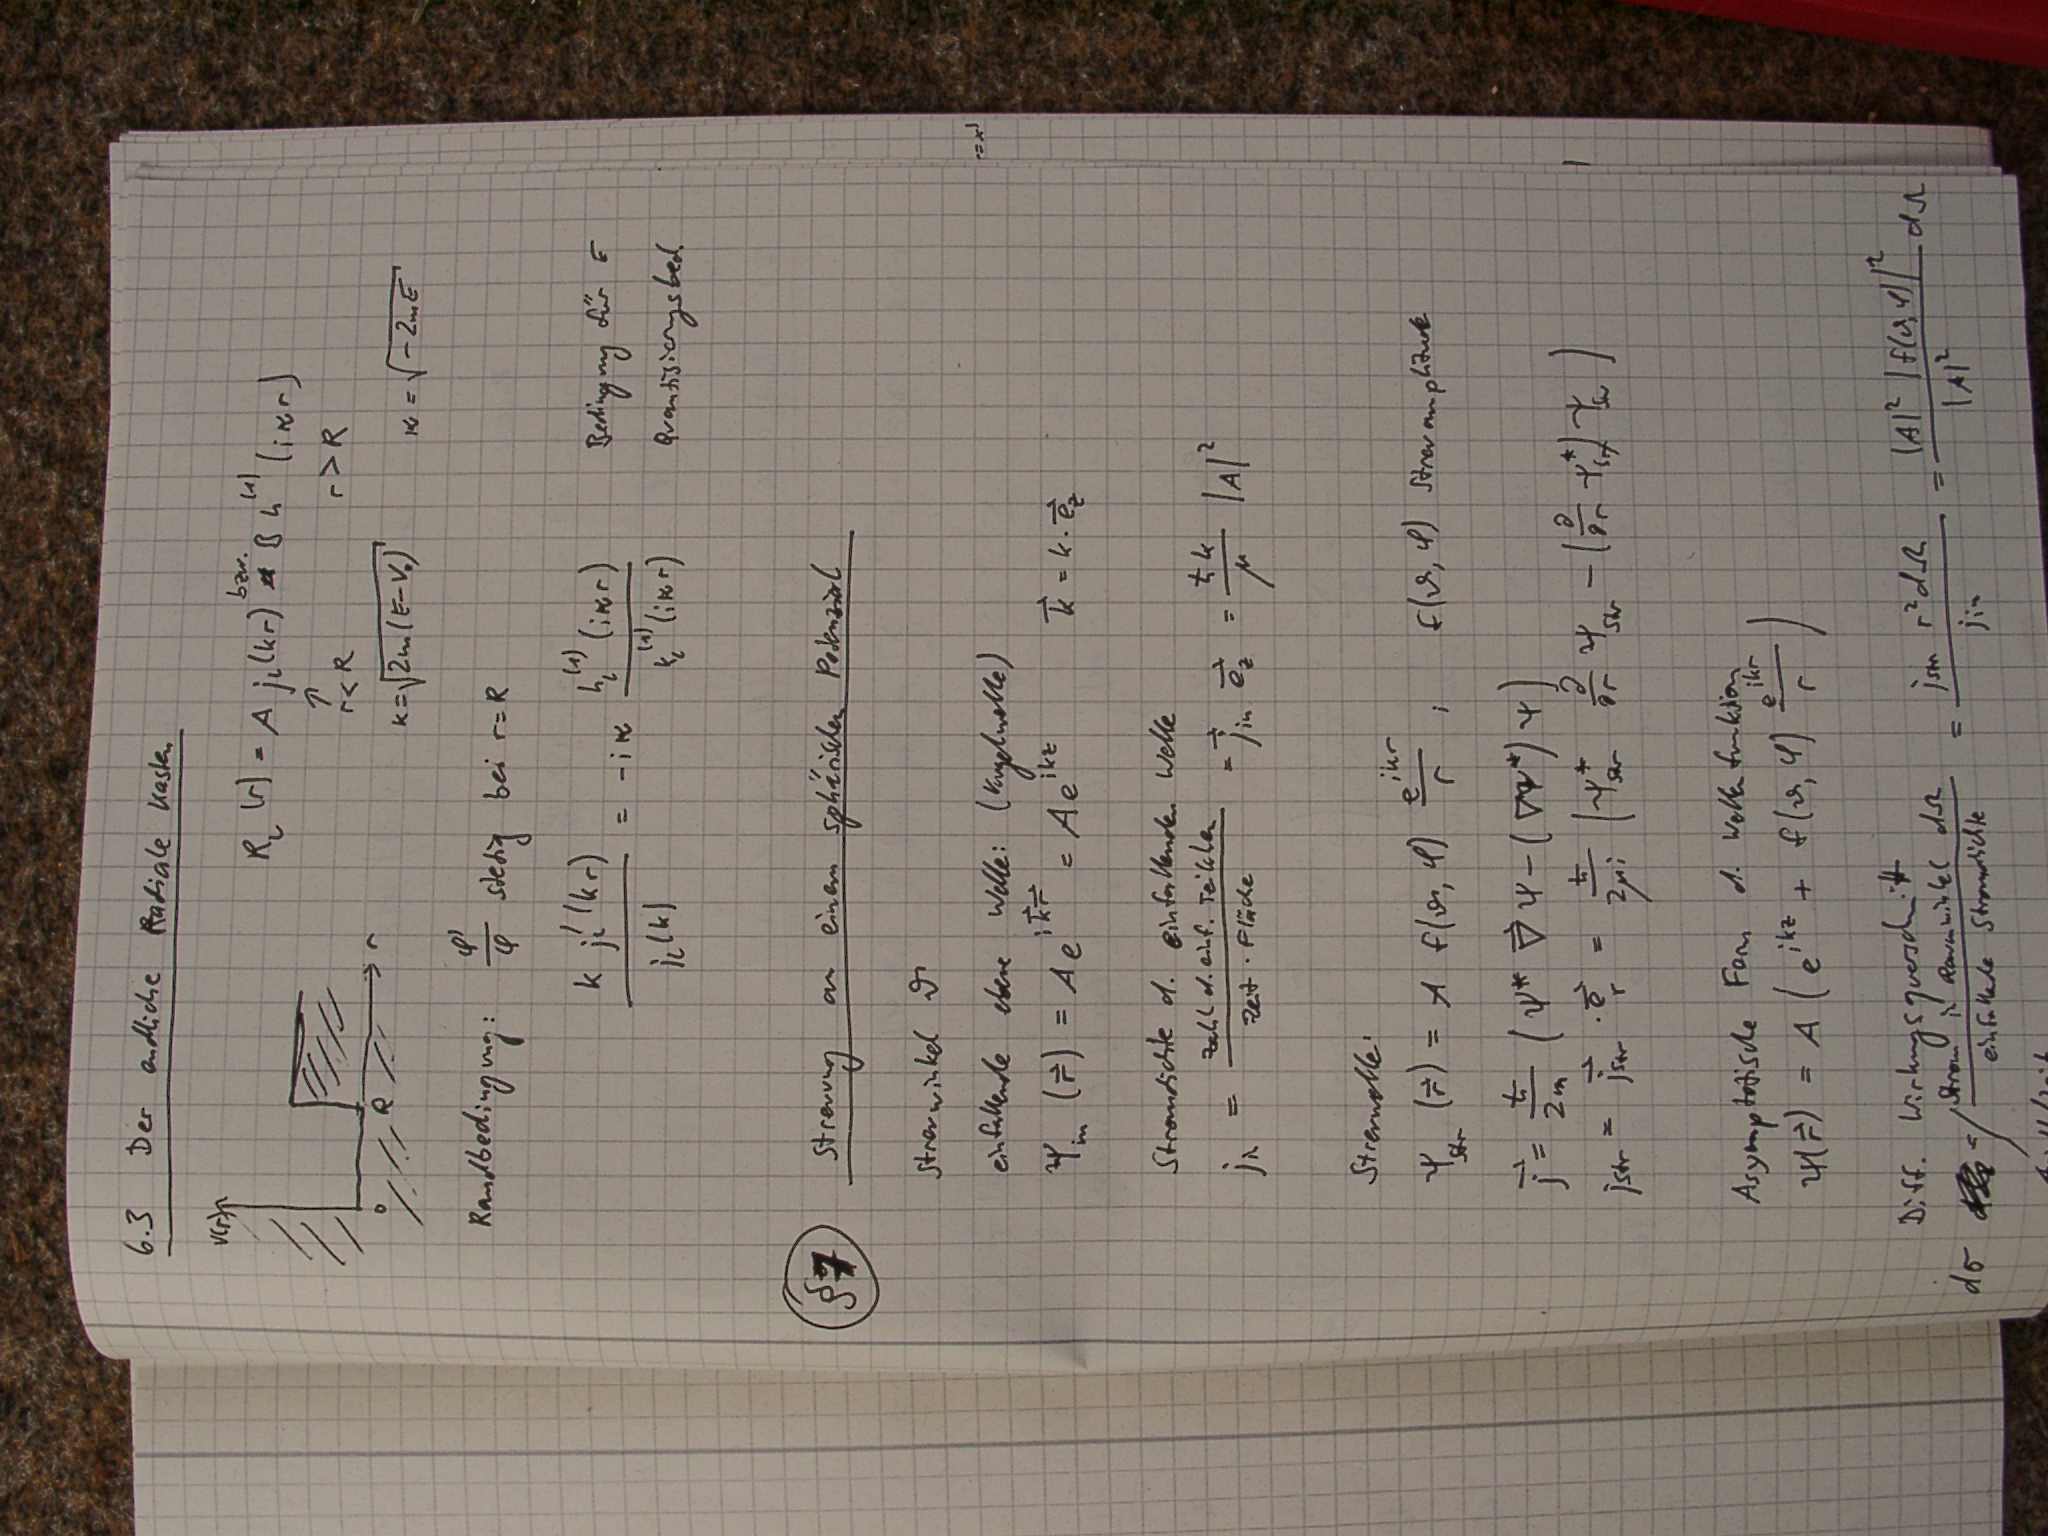 6.3 Der endliche Radiale Kasten
V(r)
0 R r
R_l (r) = A j_l (kr) bzw. B h^(1) (iκr)
↑ r<R r>R
k=√2m(E-V₀) κ=√-2mE
Randbedingung: φ'/φ stetig bei r=R
k j_l'(kr) / j_l(k) = -iκ h_l^(1) (iκr) / h_l^(1) (iκr) Bedingung für E
Quantisierungsbed.
§7 Streuung an einem sphärischen Potenzial
Streuwinkel ϑ
einfallende ebene Welle: (Kugelwelle)
ψ_in (r⃗) = A e^{ik⃗r⃗} = A e^{ikz} k⃗ = k·e⃗_z
Stromdichte d. einfallenden Welle
j_λ = Zahl d. einf. Teilchen / Zeit · Fläche = j⃗_in e⃗_z = ħk/μ |A|²
Streuwelle:
ψ_str (r⃗) = A f(ϑ,φ) e^{ikr}/r ; f(ϑ,φ) Streuamplitude
j⃗ = ħ/2m (ψ* ∇⃗ψ - (∇⃗ψ*) ψ)
j_str = j⃗_str · e⃗_r = ħ/2μi (ψ*_str ∂/∂r ψ_str - (∂/∂r ψ*_str) ψ_str)
Asymptotische Form d. Wellenfunktion
ψ(r⃗) = A (e^{ikz} + f(ϑ,φ) e^{ikr}/r)
Diff. Wirkungsquerschnitt
dσ = Strom in Raumwinkel dΩ / einfallende Stromdichte = j_str r² dΩ / j_in = |A|² |f(ϑ,φ)|² / |A|² dΩ